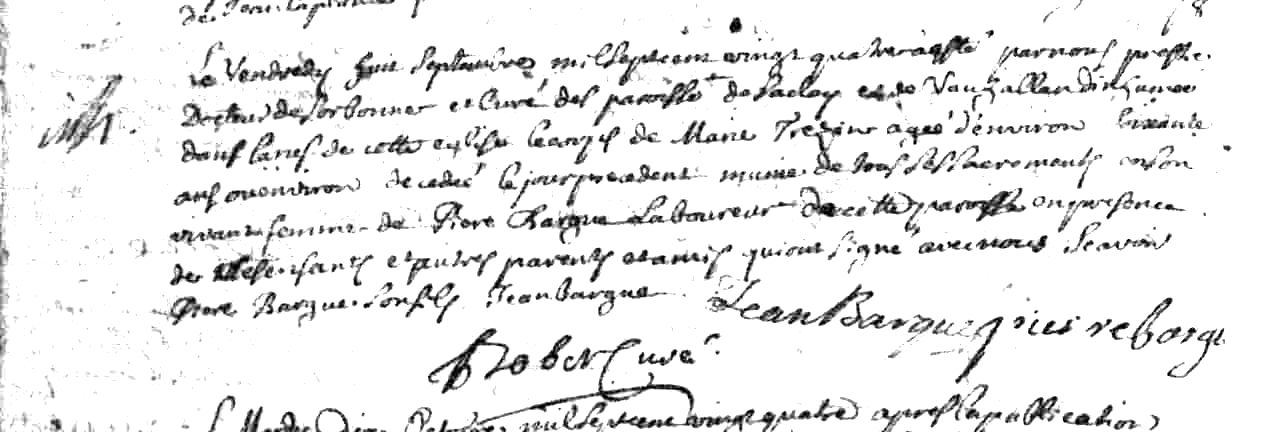 Le Vendredy huit Septembre mil sept cent vingt quatre a esté par nous prestre
Docteur de Sorbonne et Curé des paroisses de Saclay et de Vauhallan Inhumée
dans l'aires de cette eglise le corps de Marie Trezin agée d'environ soixante
ans ou environ decedée le jour precedent munie de tous ses sacrements en son
vivant femme de Piere Bargue Laboureur de cette paroisse en presence
de ses enfants et autres parents et amis qui ont signé avec nous Scavoir
Piere Bargue son fils Jean bargue Jean Bargue pierre barg
Curé
mil sept cent vingt quatre apres la publication